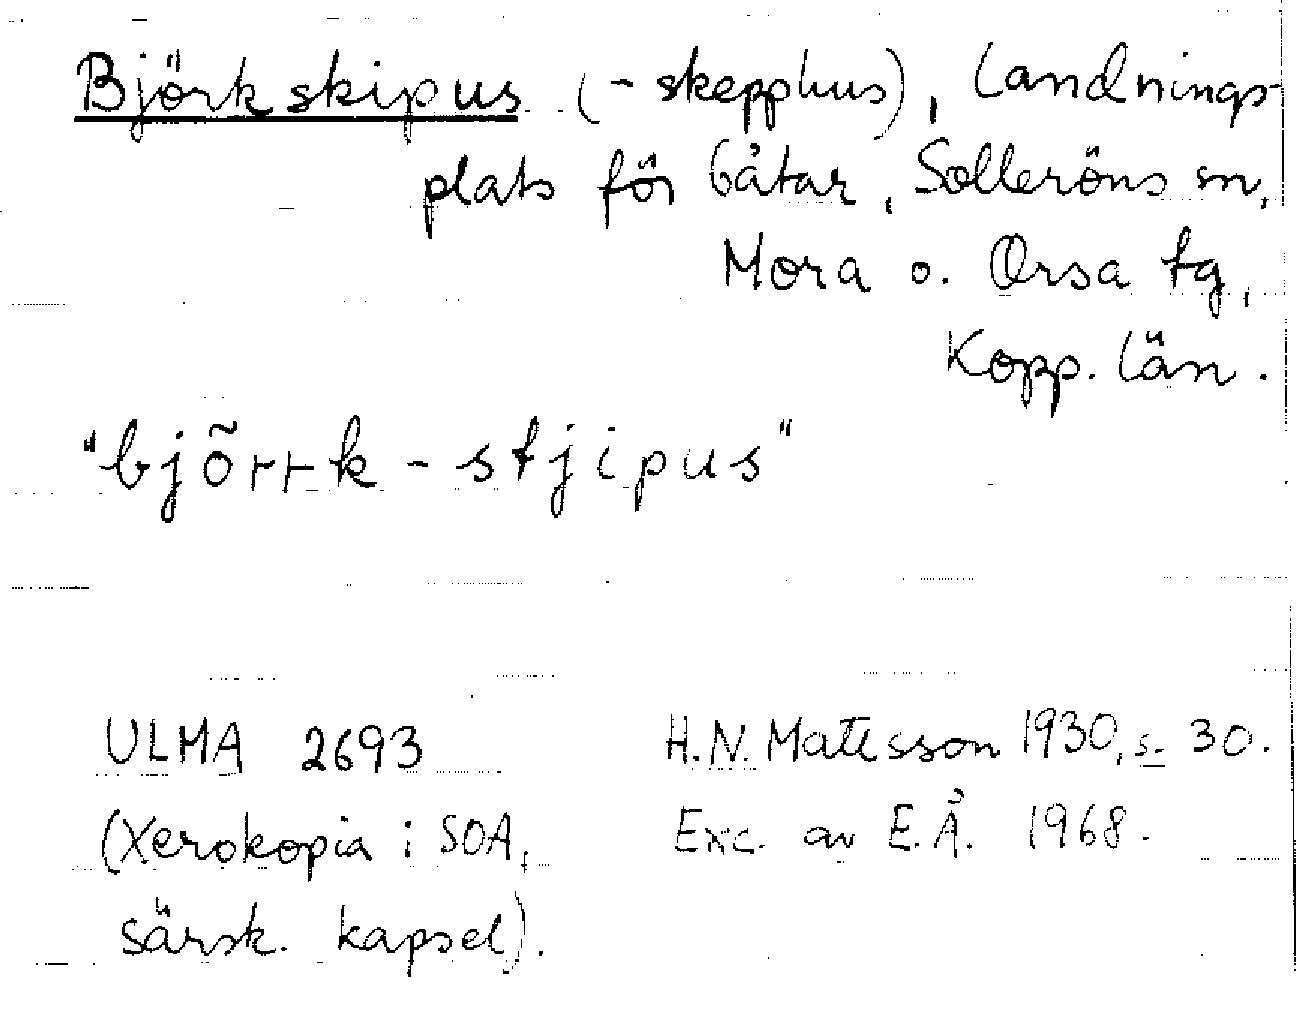 Björkskipus (-skepphus), landnings-
plats för båtar, Solleröns sn,
Mora o. Orsa tg,
Kopp. län.
"bjõrrk-stjipus"
ULMA 2693 H.N. Mattsson 1930, s. 30.
(Xerokopia i SOA, Exc. av E.Å. 1968.
särsk. kapsel).